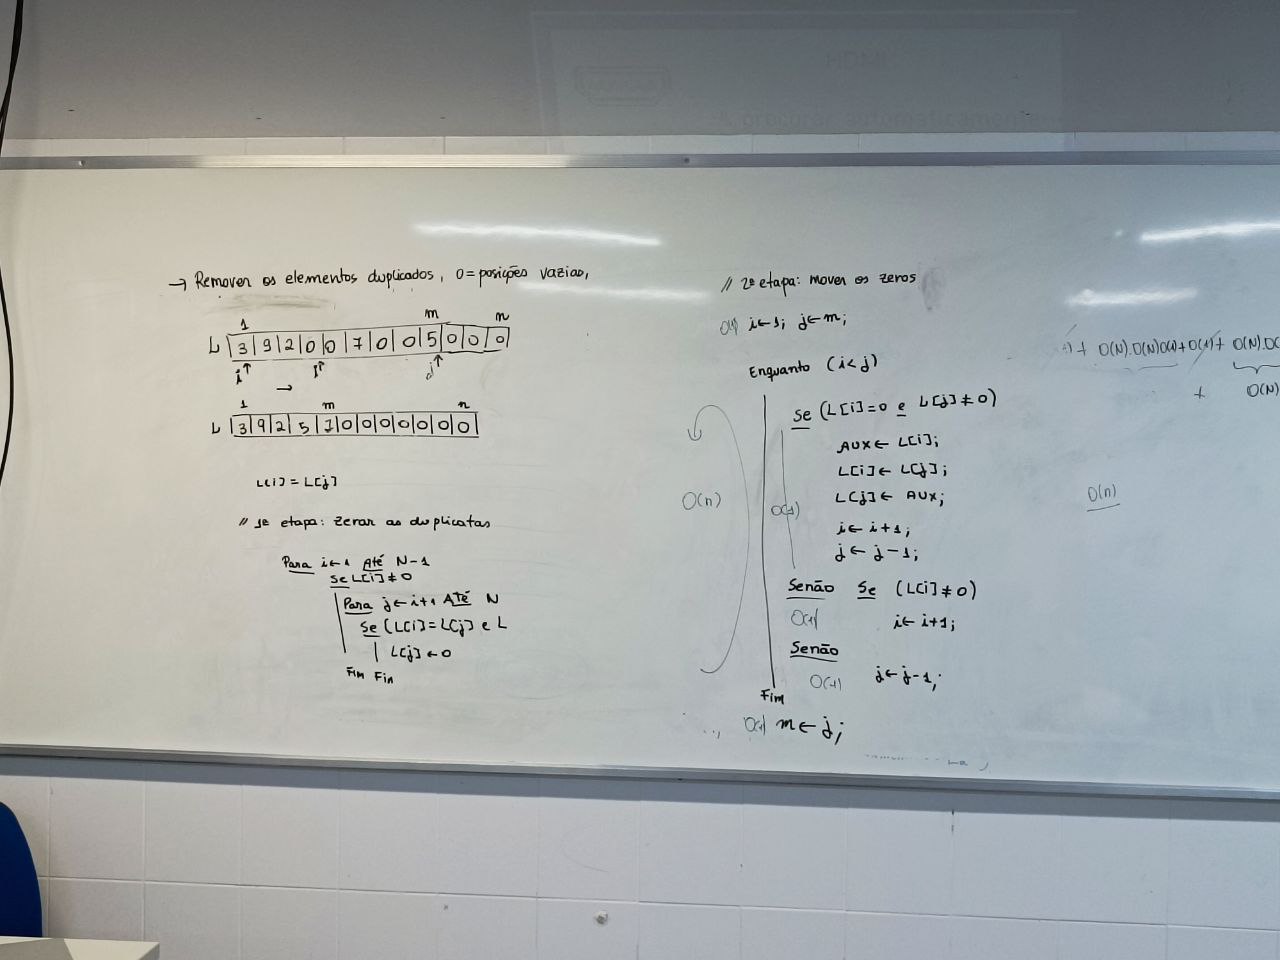 → Remover os elementos duplicados, 0 = posições vazias,
1 m n
L 3 9 2 0 0 7 0 0 5 0 0 0
i↑ ↑ j↑
→
1 m n
L 3 9 2 5 7 0 0 0 0 0 0 0
L[i] = L[j]
// 1ª etapa: zerar as duplicatas
Para i ← 1 Até N-1
Se L[i] ≠ 0
Para j ← i+1 Até N
Se (L[i] = L[j] e L
L[j] ← 0
Fim Fim
// 2ª etapa: mover os zeros
O(1) i ← 1; j ← m;
Enquanto (i < j)
Se (L[i] = 0 e L[j] ≠ 0)
AUX ← L[i];
L[i] ← L[j];
L[j] ← AUX;
i ← i+1;
j ← j-1;
O(n) O(1)
Senão Se (L[i] ≠ 0)
O(1) i ← i+1;
Senão
O(1) j ← j-1;
Fim
O(1) m ← j;
+ O(N).O(N)O(1) + O(1) + O(N).O(
+ O(N)
O(n)
HDMI
procurar automaticamente